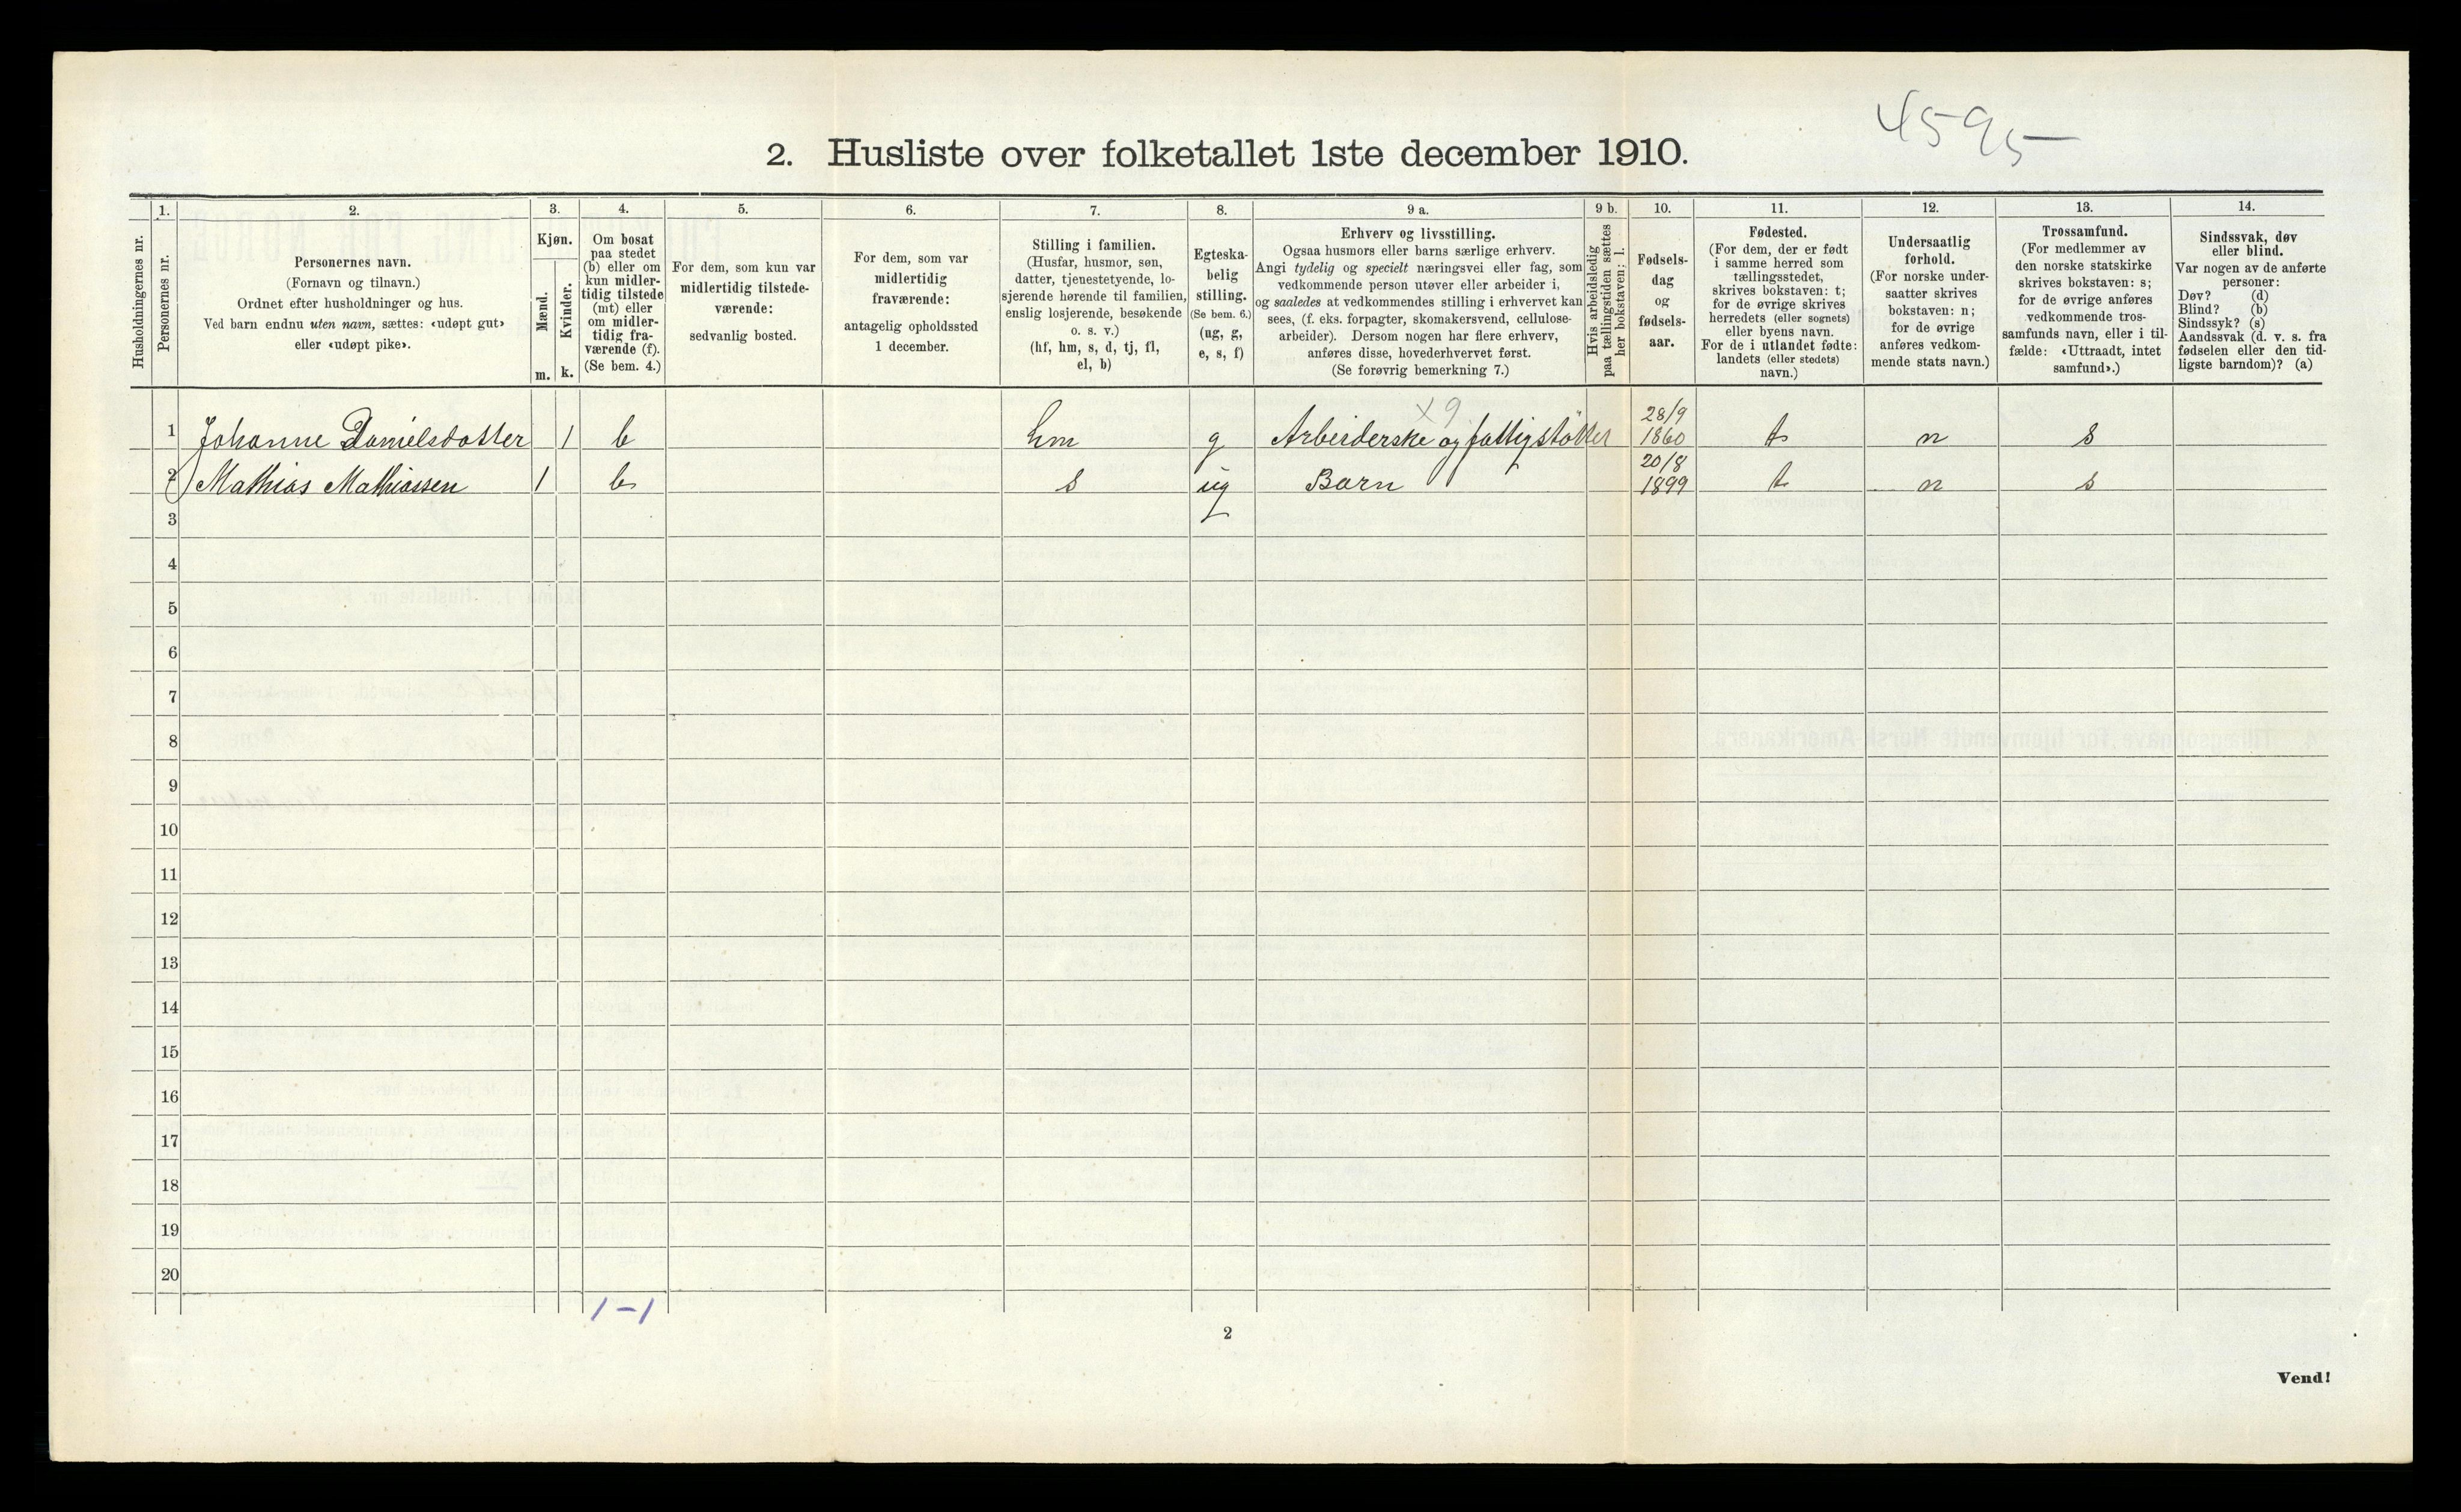 4595
2. Husliste over folketallet 1ste december 1910.
Husholdningernes nr.
1.
Personernes nr.
2.
Personernes navn.
(Fornavn og tilnavn.)
Ordnet efter husholdninger og hus.
Ved barn endnu uten navn, sættes: «udøpt gut»
eller «udøpt pike».
3.
Kjøn.
Mænd.
Kvinder.
m. k.
4.
Om bosat
paa stedet
(b) eller om
kun midler-
tidig tilstede
(mt) eller
om midler-
tidig fra-
værende (f).
(Se bem. 4.)
5.
For dem, som kun var
midlertidig tilstede-
værende:
sedvanlig bosted.
6.
For dem, som var
midlertidig
fraværende:
antagelig opholdssted
1 december.
7.
Stilling i familien.
(Husfar, husmor, søn,
datter, tjenestetyende, lo-
sjerende hørende til familien,
enslig losjerende, besøkende
o. s. v.)
(hf, hm, s, d, tj, fl,
el, b)
8.
Egteska-
belig
stilling.
(Se bem. 6.)
(ug, g,
e, s, f)
9 a.
Erhverv og livsstilling.
Ogsaa husmors eller barns særlige erhverv.
Angi tydelig og specielt næringsvei eller fag, som
vedkommende person utøver eller arbeider i,
og saaledes at vedkommendes stilling i erhvervet kan
sees, (f. eks. forpagter, skomakersvend, cellulose-
arbeider). Dersom nogen har flere erhverv,
anføres disse, hovederhvervet først.
(Se forøvrig bemerkning 7.)
9 b.
Hvis arbeidsledig
paa tællingstiden sættes
her bokstaven: l.
10.
Fødsels-
dag
og
fødsels-
aar.
11.
Fødested.
(For dem, der er født
i samme herred som
tællingsstedet,
skrives bokstaven: t;
for de øvrige skrives
herredets (eller sognets)
eller byens navn.
For de i utlandet fødte:
landets (eller stedets)
navn.)
12.
Undersaatlig
forhold.
(For norske under-
saatter skrives
bokstaven: n;
for de øvrige
anføres vedkom-
mende stats navn.)
13.
Trossamfund.
(For medlemmer av
den norske statskirke
skrives bokstaven: s;
for de øvrige anføres
vedkommende tros-
samfunds navn, eller i til-
fælde: «Uttraadt, intet
samfund».)
14.
Sindssvak, døv
eller blind.
Var nogen av de anførte
personer:
Døv? (d)
Blind? (b)
Sindssyk? (s)
Aandssvak (d. v. s. fra
fødselen eller den tid-
ligste barndom)? (a)
x9 28/9
1 Johanne Danielsdatter 1 b hm g Arbeiderske og fattigstøttet 1860 t n s
20/8
2 Mathias Mathiassen 1 b s ug Barn 1899 t n s
3
4
5
6
7
8
9
10
11
12
13
14
15
16
17
18
19
20
1-1
2
Vend!